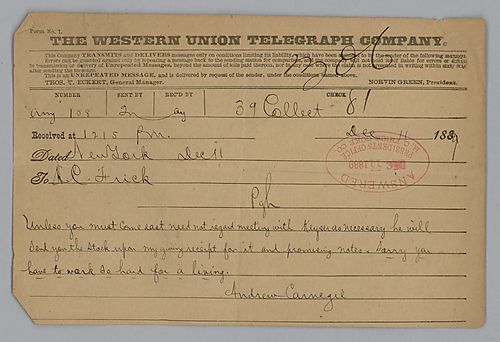 Form No. 1.
THE WESTERN UNION TELEGRAPH COMPANY.
This Company TRANSMITS and DELIVERS messages only on conditions limiting its liability, which have been assented to by the sender of the following message.
Errors can be guarded against only by repeating a message back to the sending station for comparison, and the company will not hold itself liable for errors or delays
in transmission or delivery of Unrepeated Messages, beyond the amount of tolls paid thereon, nor in any case where the claim is not presented in writing within sixty days
after sending the message.
This is an UNREPEATED MESSAGE, and is delivered by request of the sender, under the conditions named above.
THOS. T. ECKERT, General Manager. NORVIN GREEN, President.
NUMBER SENT BY REC'D BY CHECK
108 39 Collect 81
Received at 1215 Pm. Dec 11 1889
Dated New York Dec 11
To H. C. Frick
Pgh
ANSWERED
DEC 11 1889
PRESIDENT'S OFFICE
H. C. FRICK COKE CO.
Unless you must come east need not regard meeting with Keyser as necessary he will
send you the stock upon my giving receipt for it and promising notes. Sorry you
have to work so hard for a living.
Andrew Carnegie